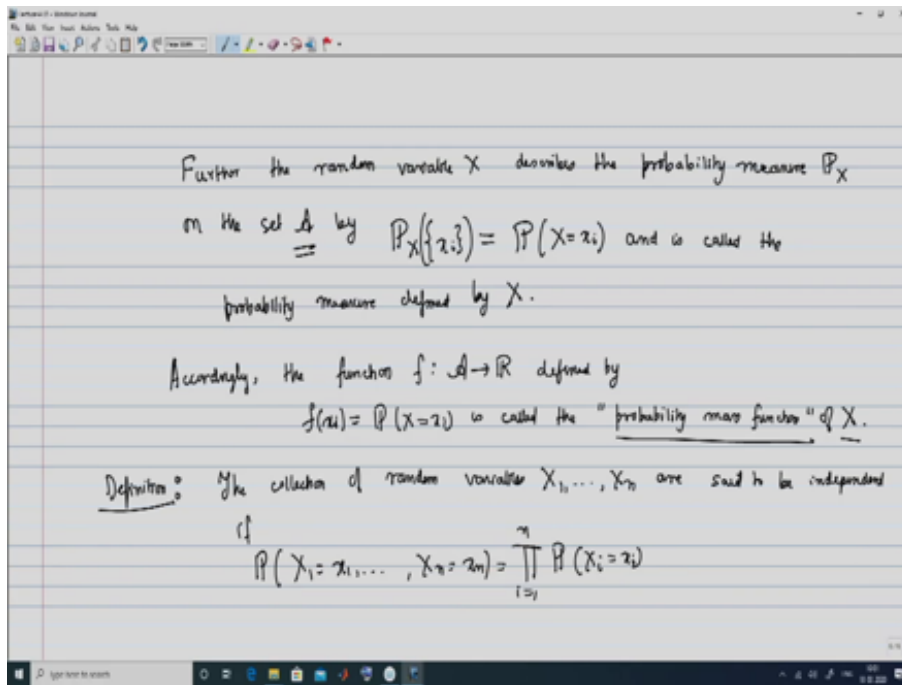 File Edit View Insert Actions Tools Help
Further the random variable X describes the probability measure ℙ_X
on the set 𝒜 by ℙ_X({x_i}) = ℙ(X=x_i) and is called the
probability measure defined by X.
Accordingly, the function f: 𝒜→ℝ defined by
f(x_i) = ℙ(X=x_i) is called the "probability mass function" of X.
Definition: The collection of random variables X_1,..., X_n are said to be independent
if
ℙ(X_1=x_1,... , X_n=x_n) = ∏_{i=1}^{n} ℙ(X_i=x_i)
Type here to search